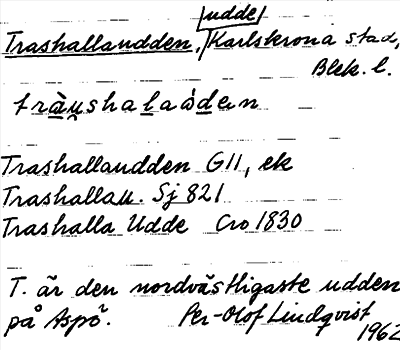 udde
Trashallaudden, Karlskrona stad,
Blek. l.
Trashallaudden G11, ek
Trashallau. Sj 821
Trashalla Udde Cro 1830
T. är den nordvästligaste udden
på Aspö. Per-Olof Lindqvist
1962